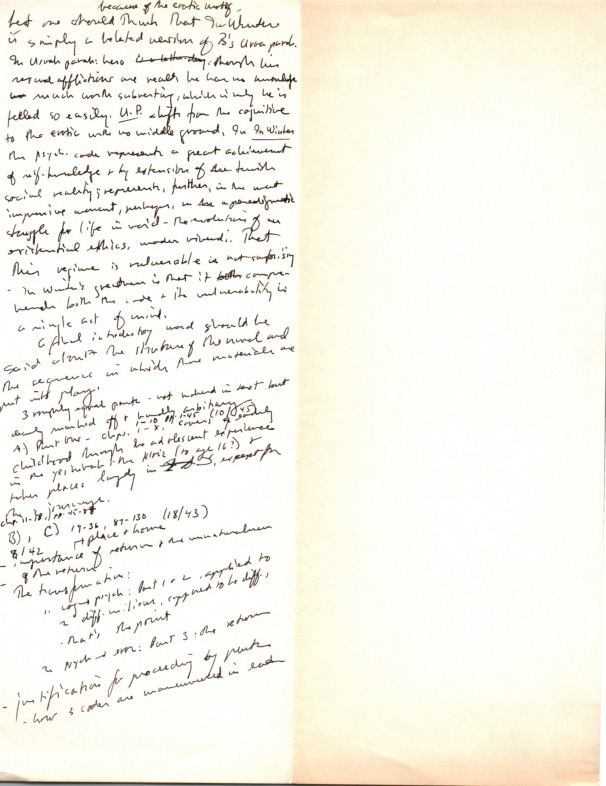 because of the erotic motif -
lest one should think that In Winter
is simply a belated version of B's Urva parah.
In Urvah parah: hero though his
sexual afflictions are real he has no knowledge
much worth subverting, which is why he is
felled so easily. U.P. shifts from the cognitive
to the erotic with no middle ground, In In Winter
the psych. code represents a great achievement
of self-knowledge & by extension of the Jewish
social reality; represents, further, in the most
impressive moment, perhaps, in the a paradigmatic
struggle for life in void - the evolution of an
existential ethics, modus vivendi. That
this regime is vulnerable is not surprising
- In Winter's greatness is that it both compre-
hends both the code & its vulnerability in
a single act of mind.
A final introductory word should be
said about the structure of the novel and
the sequence in which these materials are
put into play.
3 roughly equal parts - not in text but
clearly marked off & arbitrary
A) Part One - chps. 1-10 pp. 1-45 (10/45)
1-8, covers
childhood through the adolescent experience
in the yeshivah & the Kloiz (to age 16?) &
takes places largely in except for
the journeys.
chps 11-18, pp. 45-87
B) , C) 19-36, 87-130 (18/43)
8/42 place & home
- importance of return & the unnaturalness
of the return
- The transformation:
1. psych: Part 1 & 2, applied to
2 diff. milieus, supposed to be diff.,
- that's the point
2. Psych → eros: Part 3: the return
- justification for proceeding by parts
- how 3 codes are maneuvered in each